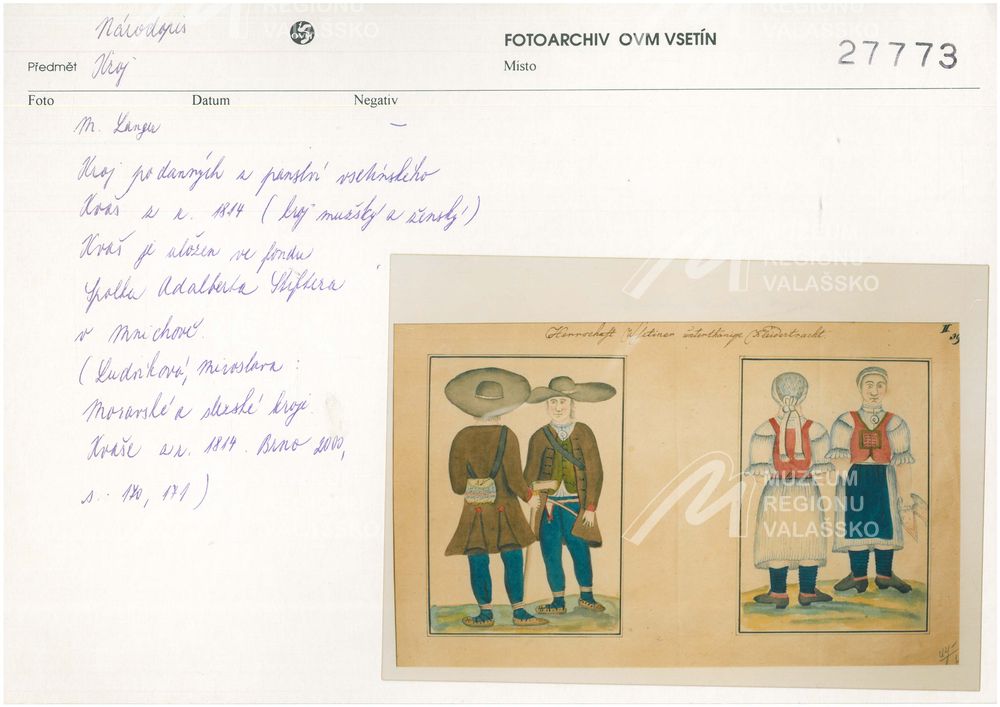 Národopis
OVM
FOTOARCHIV OVM VSETÍN
27773
Předmět Kroj
Místo
Foto Datum Negativ
M. Langer –
Kroj poddanných z panství vsetínského
Kvaš z r. 1814 (kroj mužský a ženský)
Kvaš je uložen ve fondu
Spolku Adalberta Stiftera
v Mnichově.
(Ludvíková, Miroslava:
Moravské a slezské kroje.
Kvaše z r. 1814. Brno 2000,
s. 170, 171)
Herrschaft Wsetiner
Kleidertracht.
II.
39
MUZEUM
REGIONU
VALAŠSKO
MUZEUM
REGIONU
VALAŠSKO
REGIONU
VALAŠSKO
REGIONU
VALAŠSKO